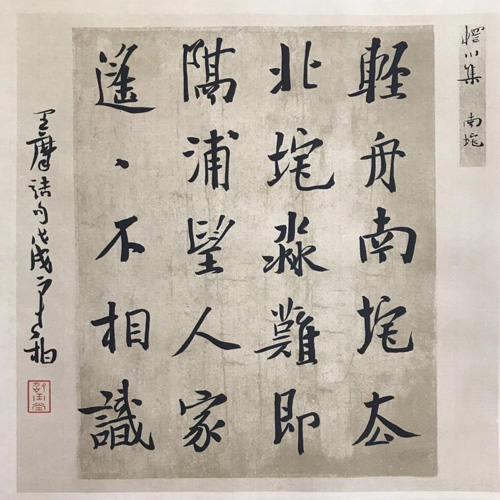 輞川集 南垞
輕舟南垞去
北垞淼難即
隔浦望人家
遙、不相識
王摩詰句戊戌